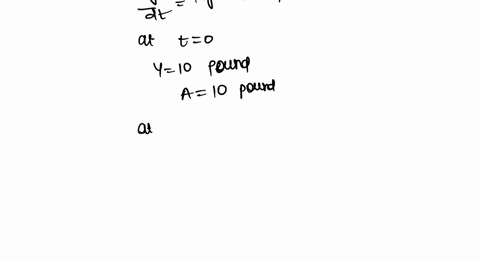 dt =
at t=0
Y=10 pound
A=10 pound
at